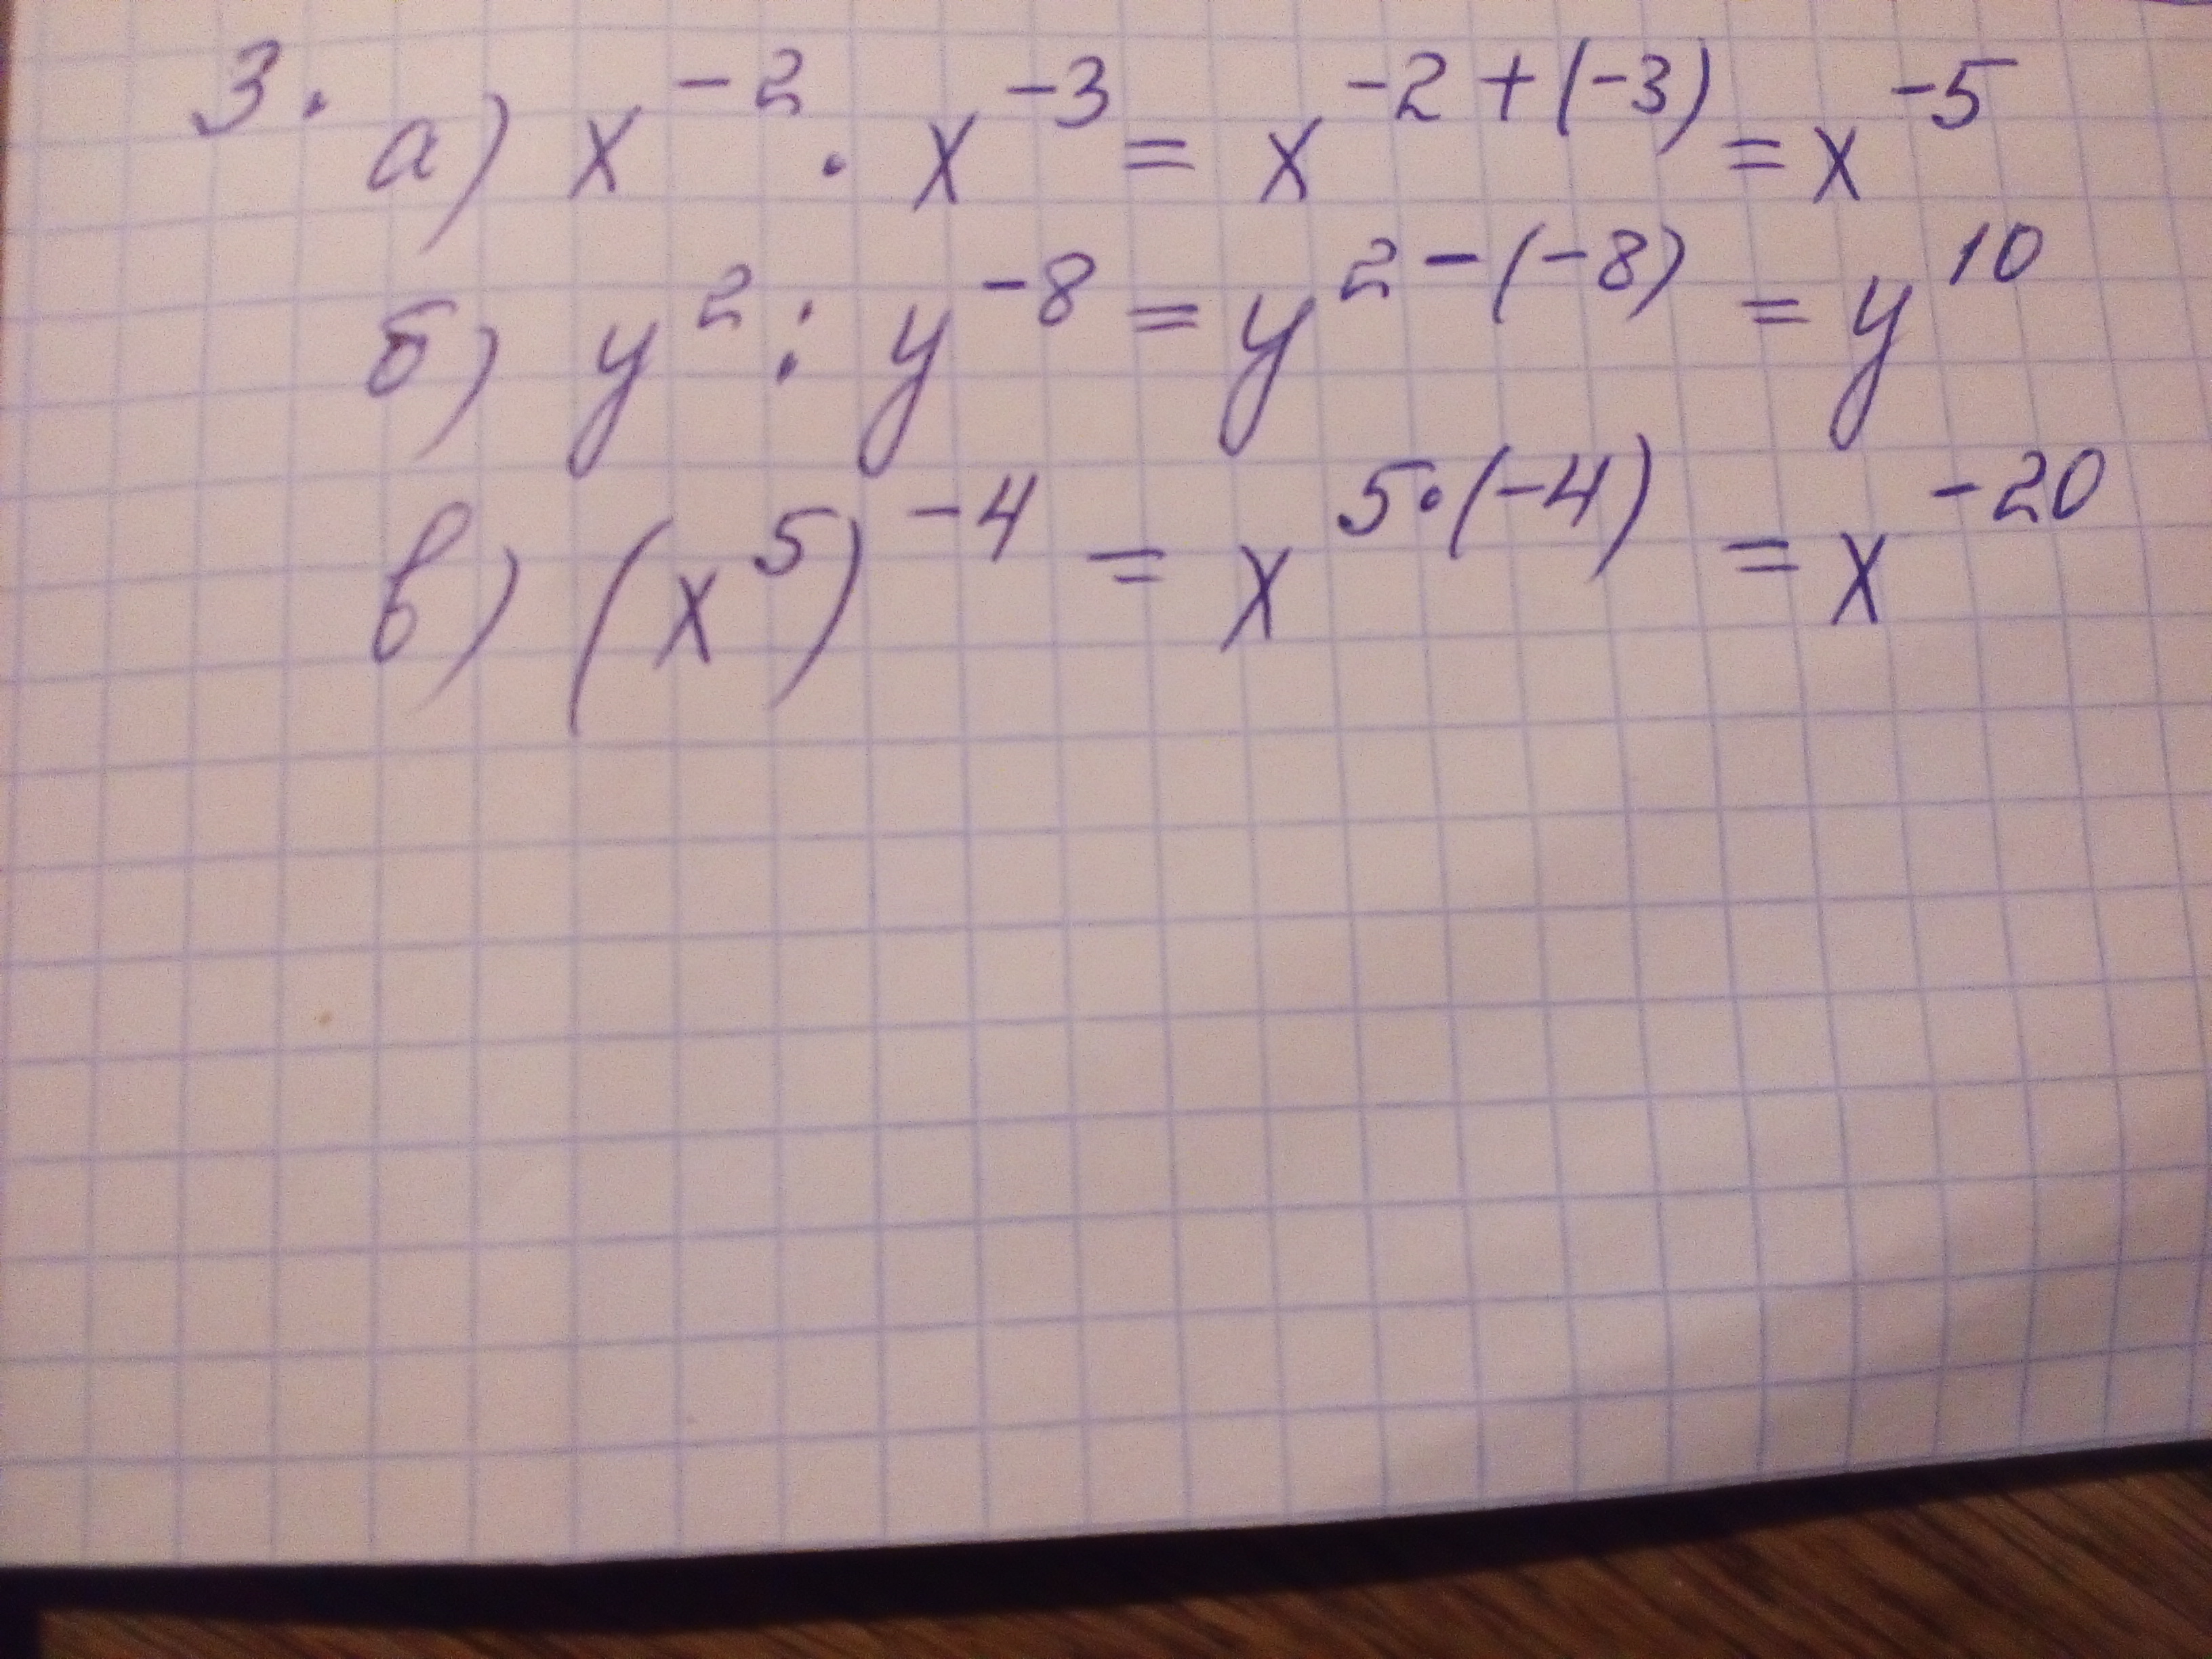 3. а) x⁻² · x⁻³ = x⁻²⁺⁽⁻³⁾ = x⁻⁵
б) y² : y⁻⁸ = y²⁻⁽⁻⁸⁾ = y¹⁰
в) (x⁵)⁻⁴ = x^5·(-4) = x⁻²⁰